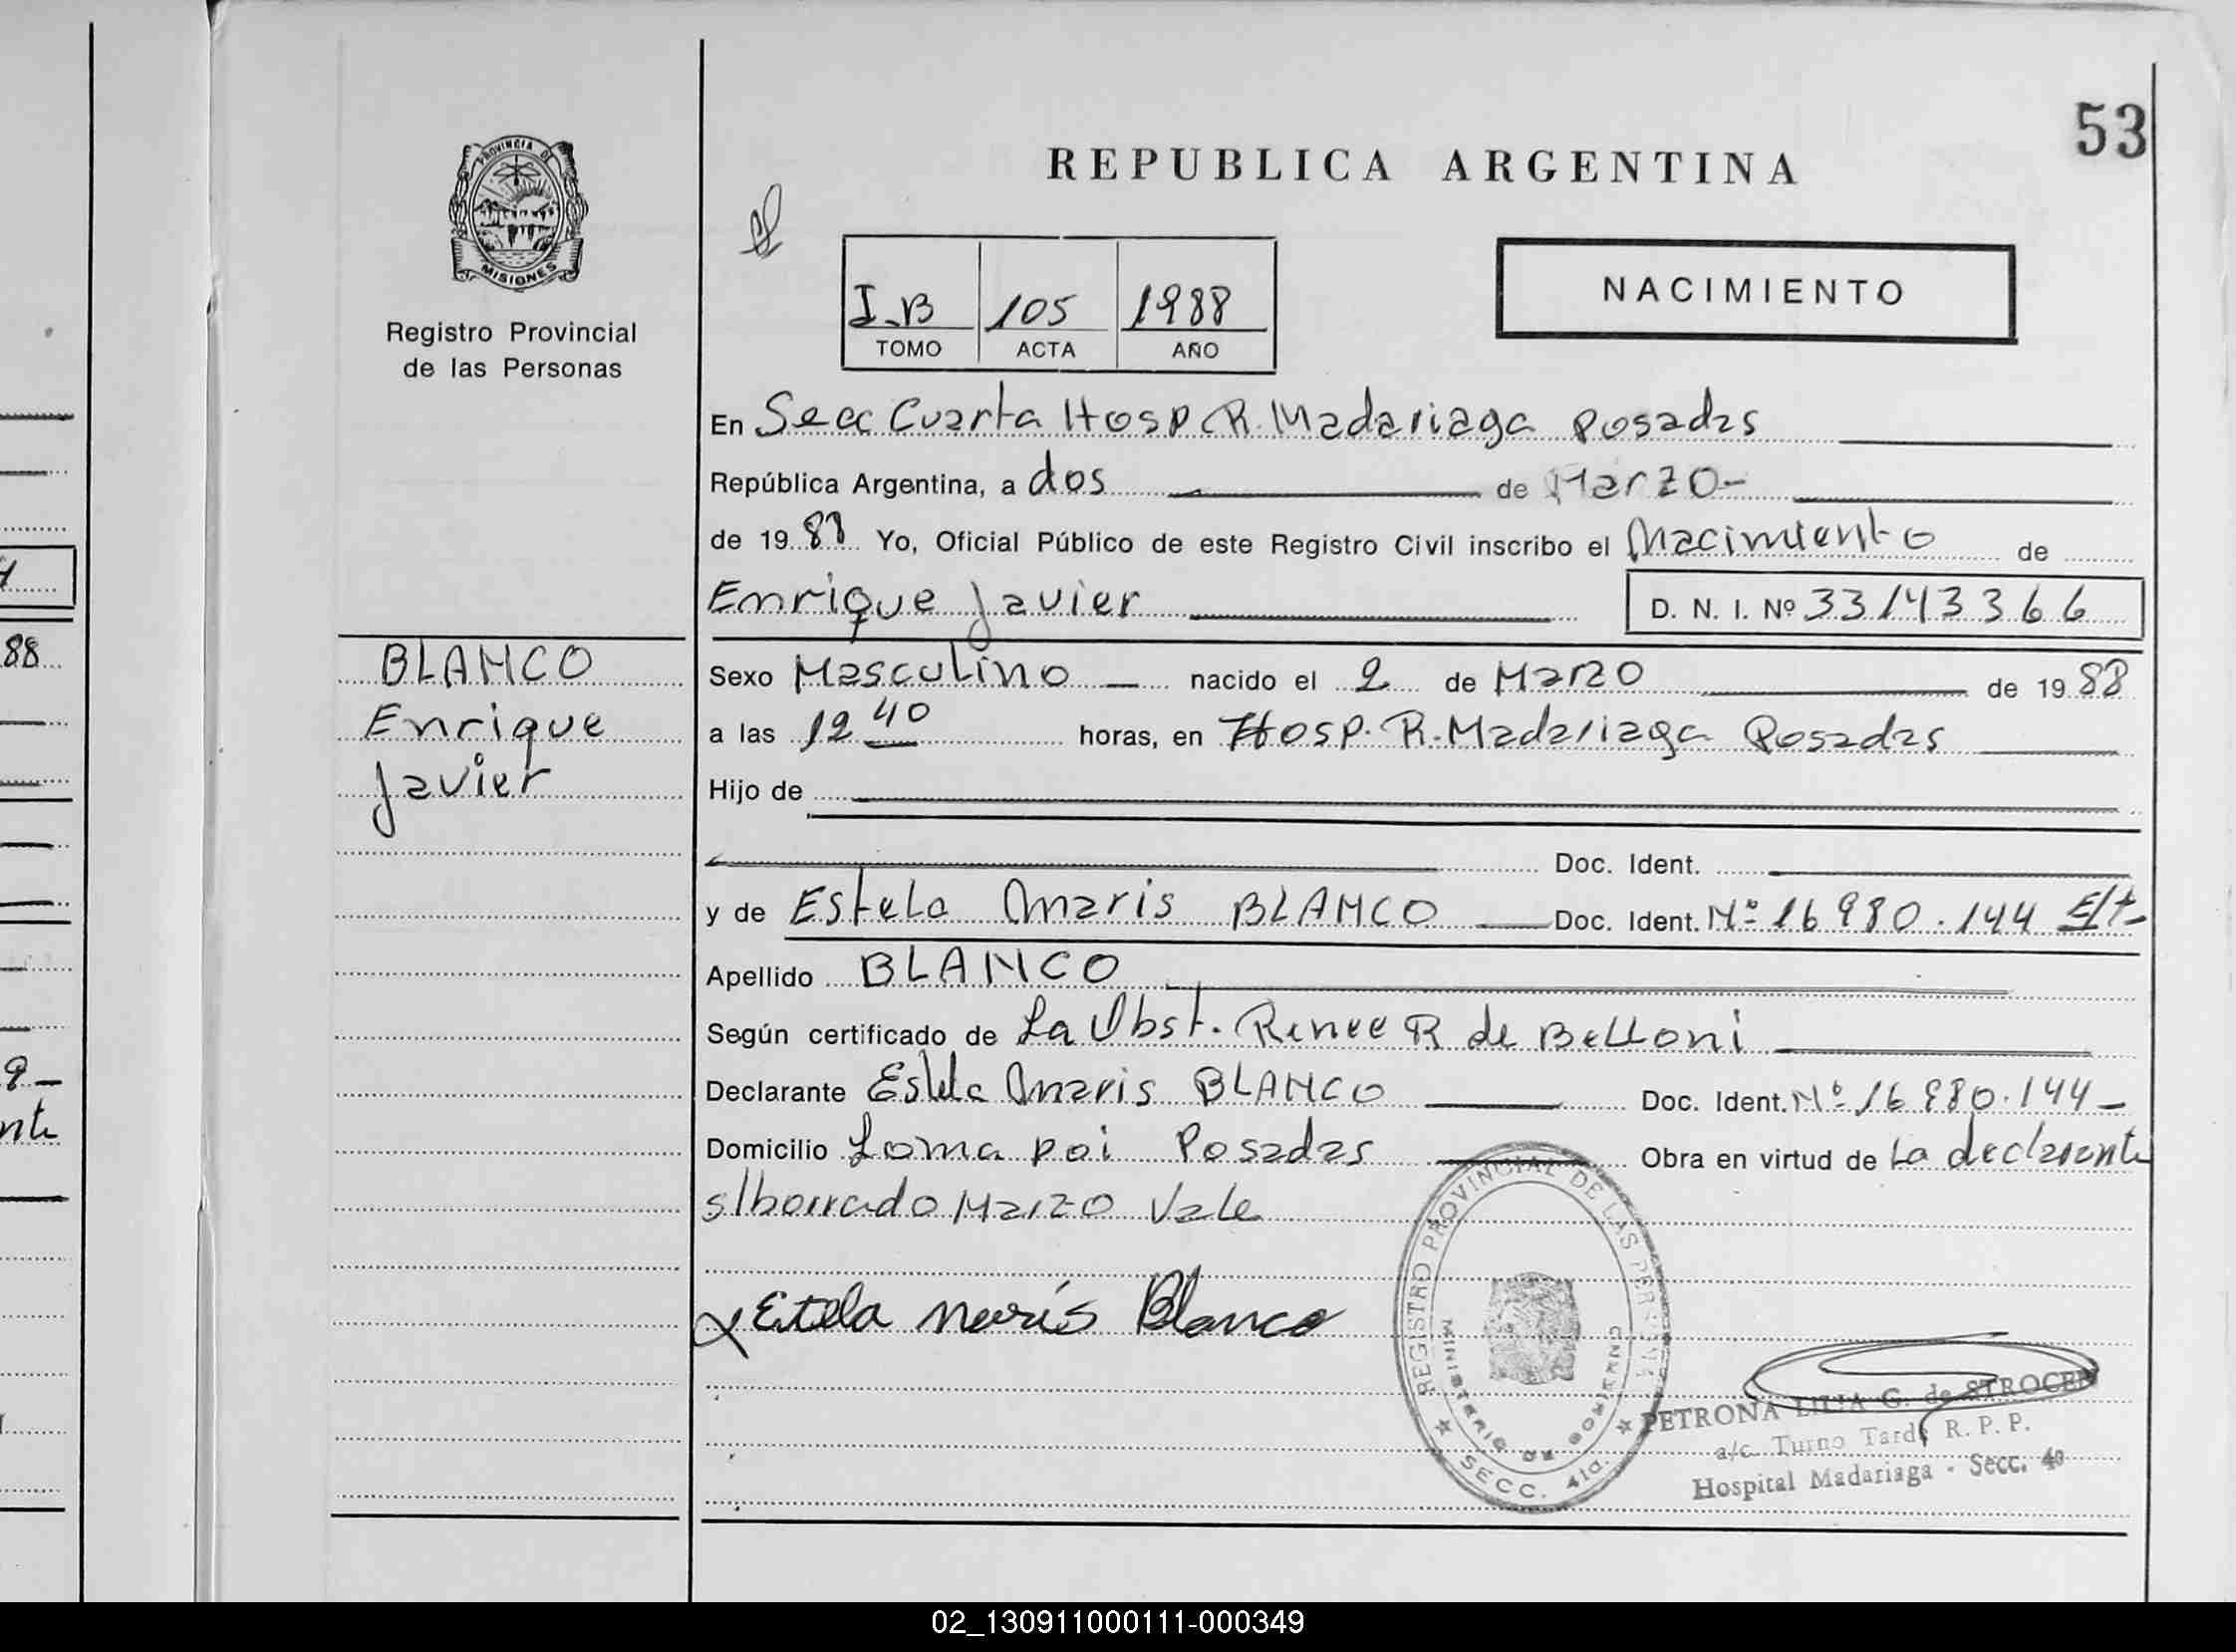 53
PROVINCIA DE
MISIONES
Registro Provincial
de las Personas
REPUBLICA ARGENTINA
I-B 105 1988
TOMO ACTA AÑO
NACIMIENTO
En Secc Cuarta Hosp R. Madariaga Posadas
República Argentina, a dos de Marzo-
de 1988 Yo, Oficial Público de este Registro Civil inscribo el Nacimiento de
Enrique Javier D. N. I. Nº 33143366
BLANCO
Enrique
Javier
Sexo Masculino nacido el 2 de Marzo de 1988
a las 12 40 horas, en Hosp. R. Madariaga Posadas
Hijo de
Doc. Ident.
y de Estela Maris BLANCO Doc. Ident. Nº 16980.144 E/t-
Apellido BLANCO
Según certificado de La Obst. Renee R de Belloni
Declarante Estela Maris BLANCO Doc. Ident. Nº 16980.144-
Domicilio Loma Poi Posadas Obra en virtud de La declarante
s/borrado Marzo Vale
Estela maris Blanco
REGISTRO PROVINCIAL DE LAS PERSONAS
MINISTERIO DE GOBIERNO
SECC. 4ta.
PETRONA LILIA G. de STROCEN
a/c. Turno Tarde R. P. P.
Hospital Madariaga - Secc. 4a
88
9-
nte
02_130911000111-000349